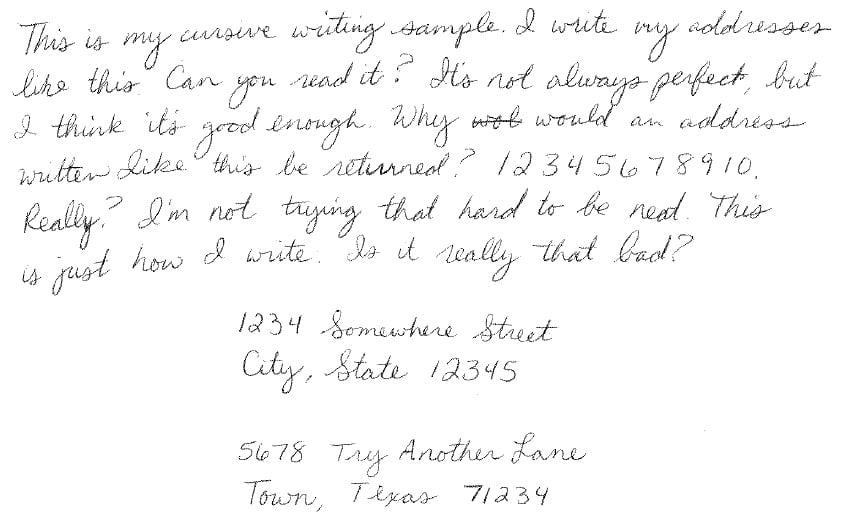 This is my cursive writing sample. I write my addresses
like this. Can you read it? It's not always perfect, but
I think it's good enough. Why wol would an address
written like this be returned? 1 2 3 4 5 6 7 8 9 10.
Really? I'm not trying that hard to be neat. This
is just how I write. Is it really that bad?
1234 Somewhere Street
City, State 12345
5678 Try Another Lane
Town, Texas 71234